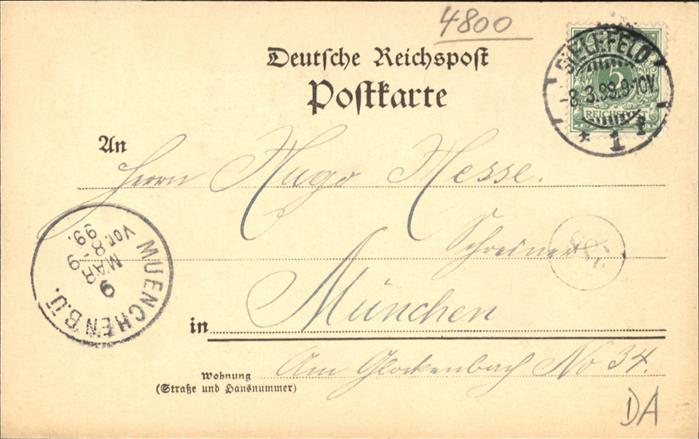 4800
Deutsche Reichspost
Postkarte
BIELEFELD
8.3.99.9-10V.
* 1 f
5
REICHSPOST
An
Herrn Hugo Hesse.
Schreiner
München
in
Am Glockenbach No 34.
Wohnung
(Straße und Hausnummer)
MUENCHEN B.Ü.
9
MAR
8-9
Vor.
99.
DA